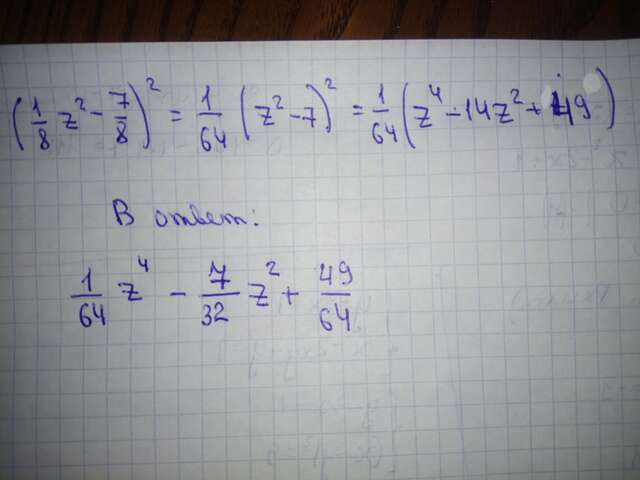 (1/8 z² - 7/8)² = 1/64 (z² - 7)² = 1/64 (z⁴ - 14z² + 49)
В ответ:
1/64 z⁴ - 7/32 z² + 49/64